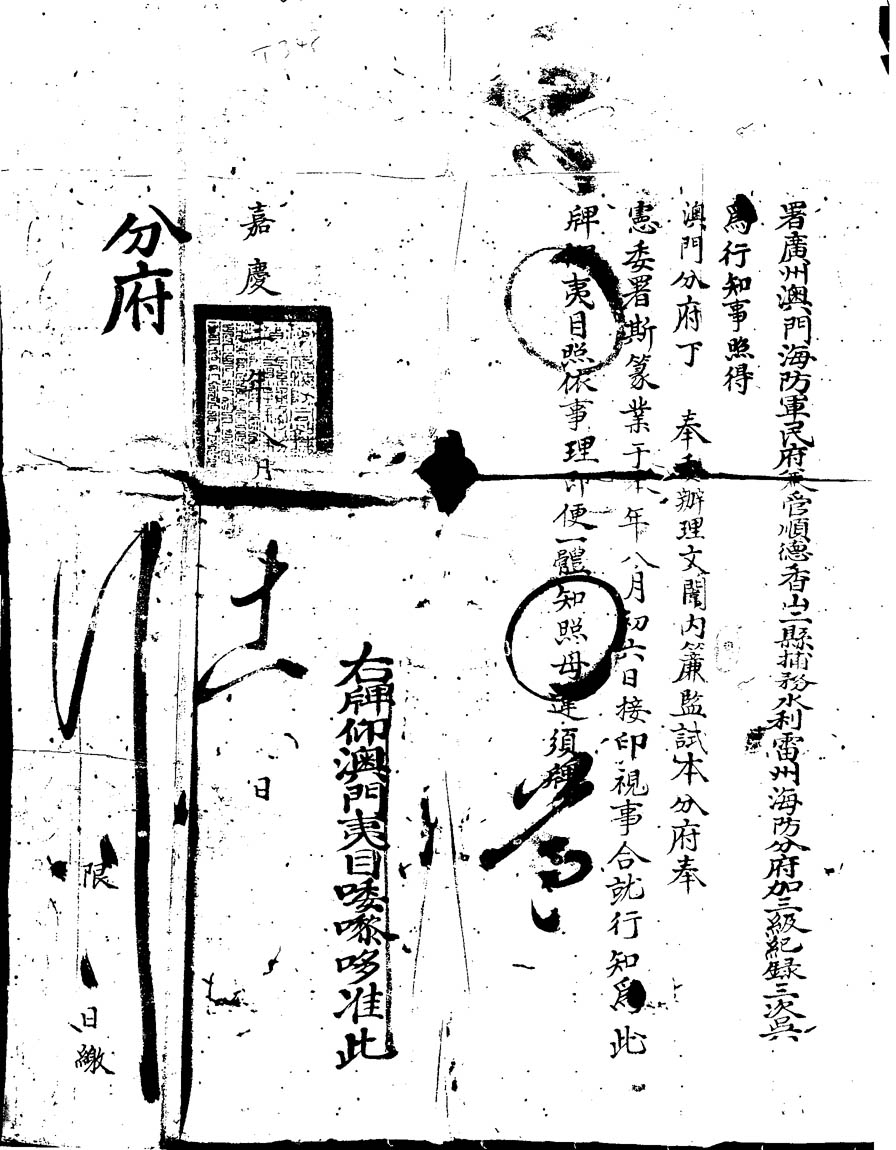 署廣州澳門海防軍民府兼管順德香山二縣捕務水利雷州海防分府加三級紀錄三次吳
爲行知事照得
澳門分府丁 奉委辦理文闈内簾監試本分府奉
憲委署斯篆業于本年八月初六日接印視事合就行知爲此
牌仰夷目照依事理即便一體知照毋違須牌
右牌仰澳門夷目唩嚟哆准此
嘉慶 年八月 日
分府
限 日繳